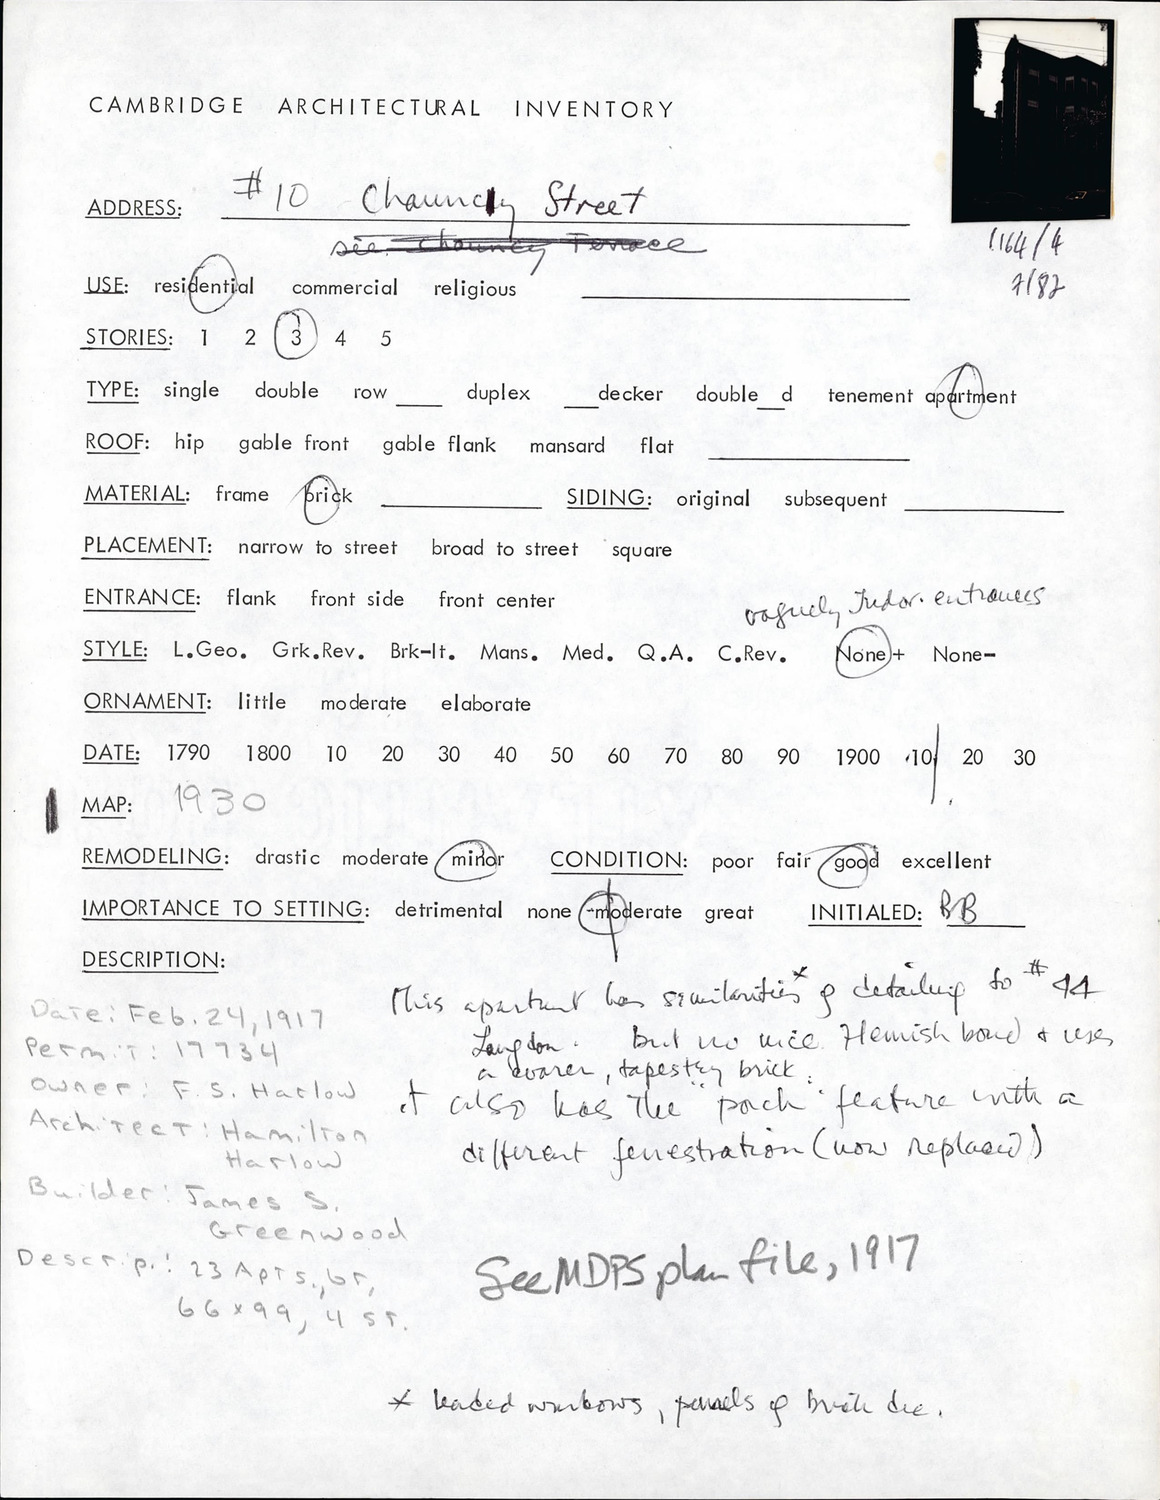 CAMBRIDGE ARCHITECTURAL INVENTORY
ADDRESS: #10 Chauncy Street
see Chauncy Terrace
1164/4
7/82
USE: residential commercial religious
STORIES: 1 2 3 4 5
TYPE: single double row ___ duplex ___decker double__d tenement apartment
ROOF: hip gable front gable flank mansard flat
MATERIAL: frame brick SIDING: original subsequent
PLACEMENT: narrow to street broad to street square
ENTRANCE: flank front side front center
vaguely Tudor entrances
STYLE: L.Geo. Grk.Rev. Brk-It. Mans. Med. Q.A. C.Rev. None+ None-
ORNAMENT: little moderate elaborate
DATE: 1790 1800 10 20 30 40 50 60 70 80 90 1900 10 20 30
MAP: 1930
REMODELING: drastic moderate minor CONDITION: poor fair good excellent
IMPORTANCE TO SETTING: detrimental none moderate great INITIALED: BB
DESCRIPTION:
This apartmt has similarities* of detailing to #44
Langdon. But no nice Flemish bond + uses
a coarser, tapestry brick.
It also has the "porch" feature with a
different fenestration (now replaced)
Date: Feb. 24, 1917
Permit: 17734
Owner: F. S. Harlow
Architect: Hamilton
Harlow
Builder: James S.
Greenwood
Descrip.: 23 Apts., br,
66x99, 4 st.
See MDPS plan file, 1917
* leaded windows, panels of brick dec.